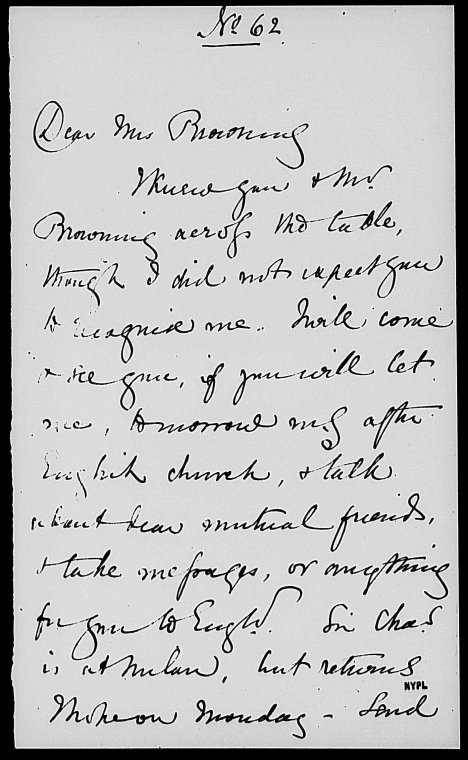 No 62
Dear Mrs Browning
I knew you & Mr.
Browning across the table,
though I did not expect you
to recognise me. I will come
& see you, if you will let
me, tomorrow mg after
English church, & talk
about dear mutual friends,
& take messages, or anything
for you to Engld. Sir Chas
is at Milan, but returns
NYPL
Monday - Send